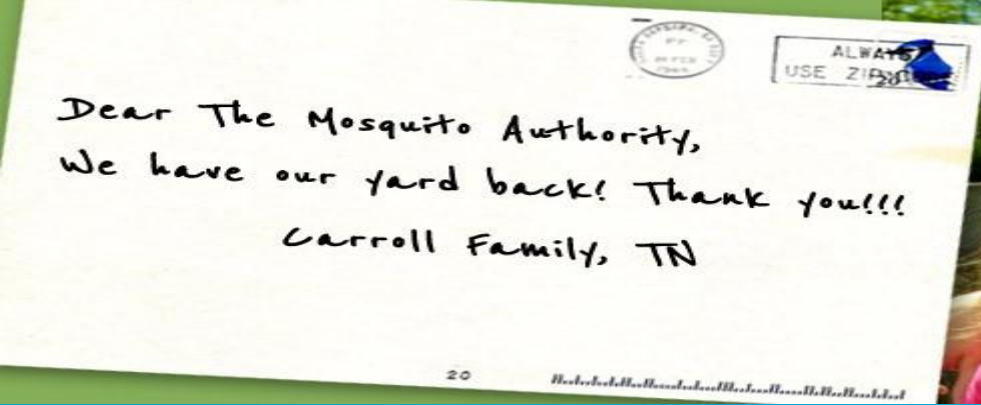 ALWAYS
USE ZIP
20
Dear The Mosquito Authority,
We have our yard back! Thank you!!!
Carroll Family, TN
20